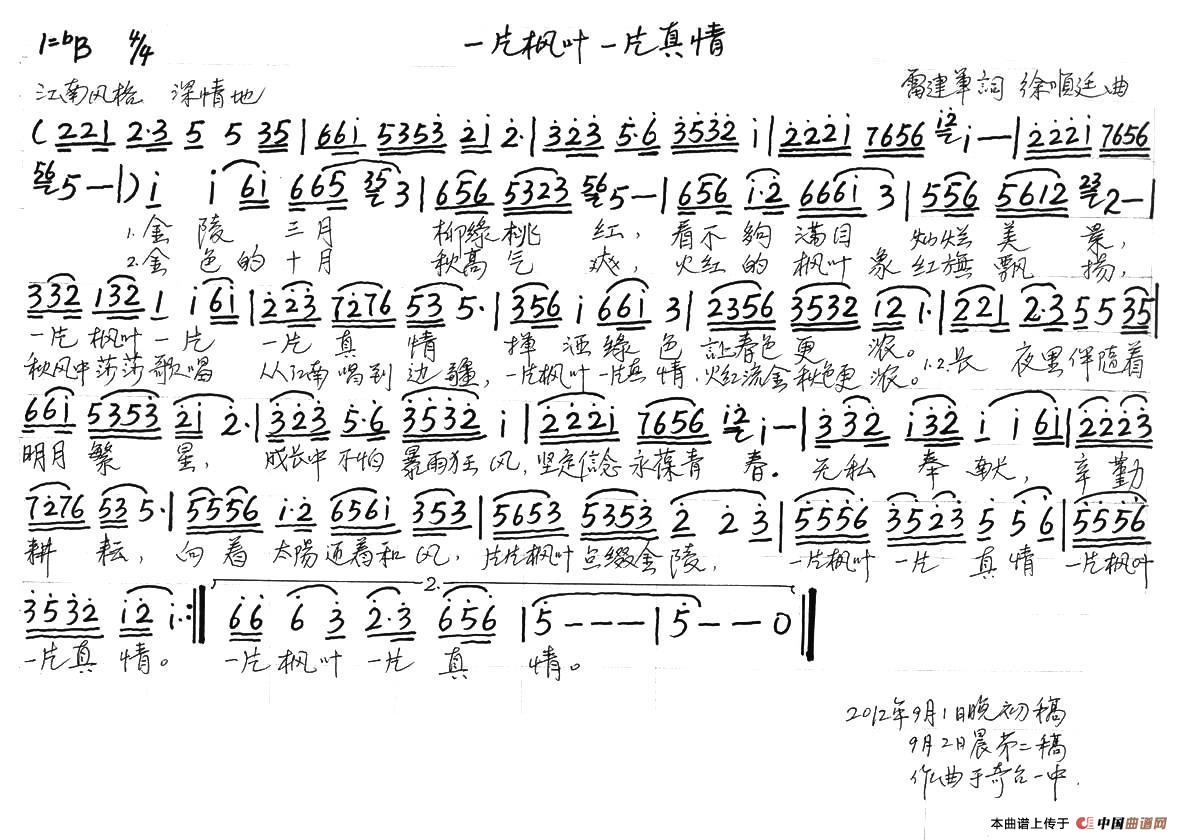 1=bB 4/4 一片枫叶一片真情
江南风格 深情地 雷建軍詞 徐順廷曲
( 221 2·3 5 5 35 | 661 5353 21 2· | 323 5·6 3532 1 | 2221 7656 12 1 — — | 2221 7656
56 5 — | ) 1 1 61 665 35 3 | 656 5323 56 5 — | 656 1·2 6661 3 | 556 5612 23 2 — |
1.金陵三月 柳綠桃红，看不夠满目灿烂美景，
2.金色的十月 秋高气爽，火红的枫叶象红旗飘揚，
332 132 1 1 61 | 223 7276 53 5· | 356 1 661 3 | 2356 3532 12 1· | 221 2·3 5 5 35 |
一片枫叶一片 一片真情 揮洒綠色 让春色更浓。
秋风中莎莎歌唱 从江南唱到边疆，一片枫叶一片真情，火红流金秋色更浓。1.2.长夜里伴随着
661 5353 21 2· | 323 5·6 3532 1 | 2221 7656 12 1 — | 332 132 1 1 61 | 2223
明月繁星，成长中不怕暴雨狂风，坚定信念永葆青春。无私奉献，辛勤
7276 53 5· | 5556 1·2 6561 353 | 5653 5353 2 2 3 | 5556 3523 5 5 6 | 5556
耕耘，向着太陽迎着和风，片片枫叶点缀金陵，一片枫叶一片真情一片枫叶
3532 12 1· :‖ 2. 66 6 3 2·3 656 | 5 — — — | 5 — — 0 ‖
一片真情。一片枫叶一片真情。
2012年9月1日晚初稿
9月2日晨第二稿
作曲于奇台一中.
本曲谱上传于 中国曲谱网